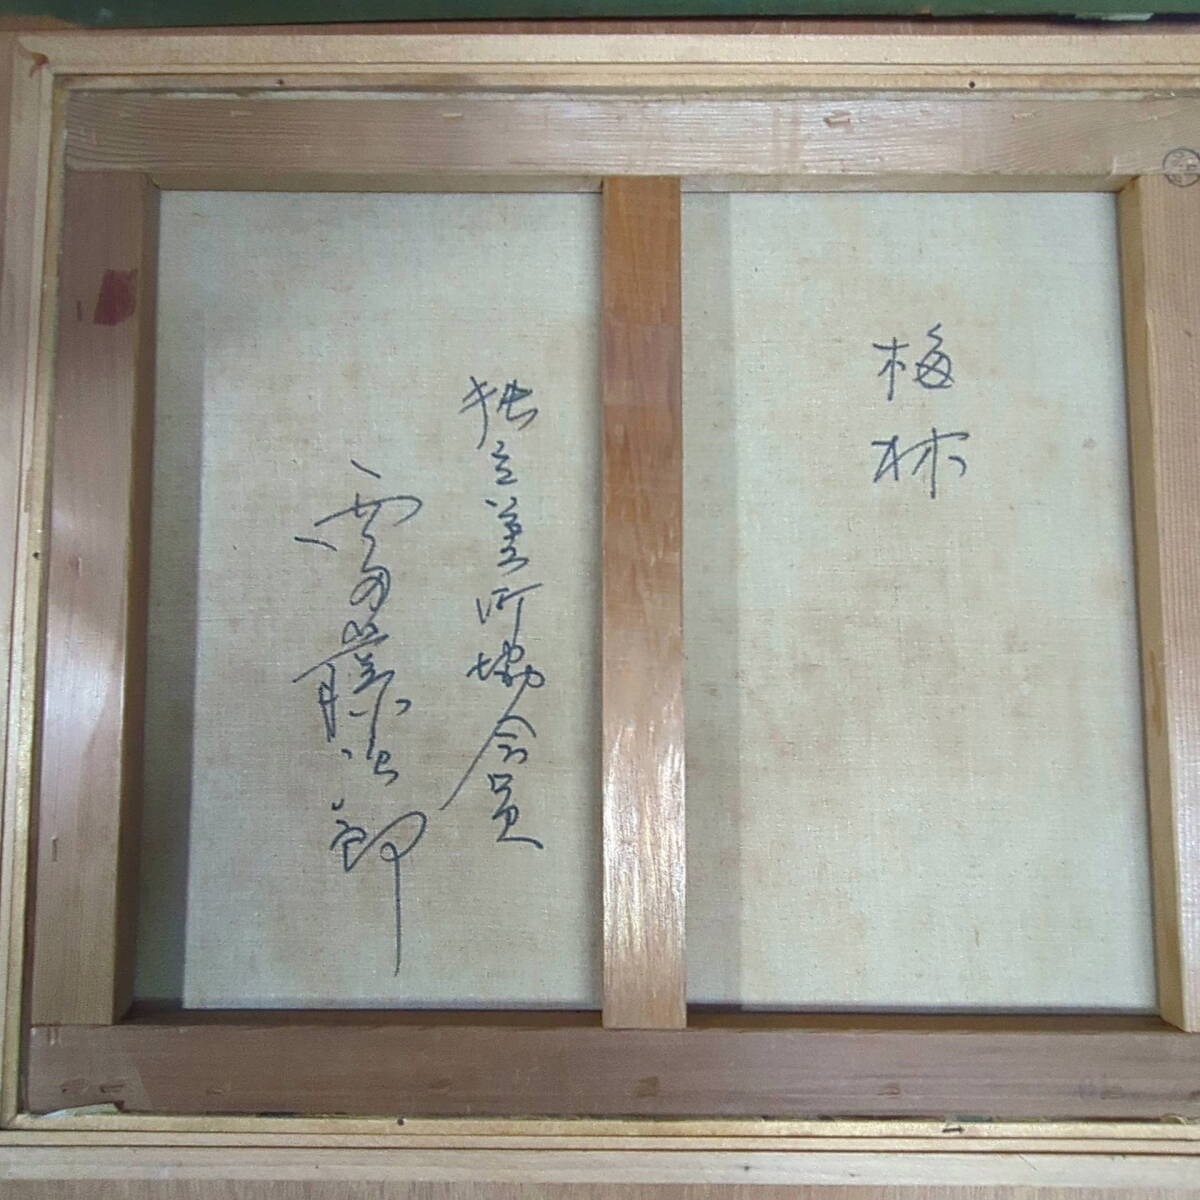 梅林
独立美術協会員
藤 郎